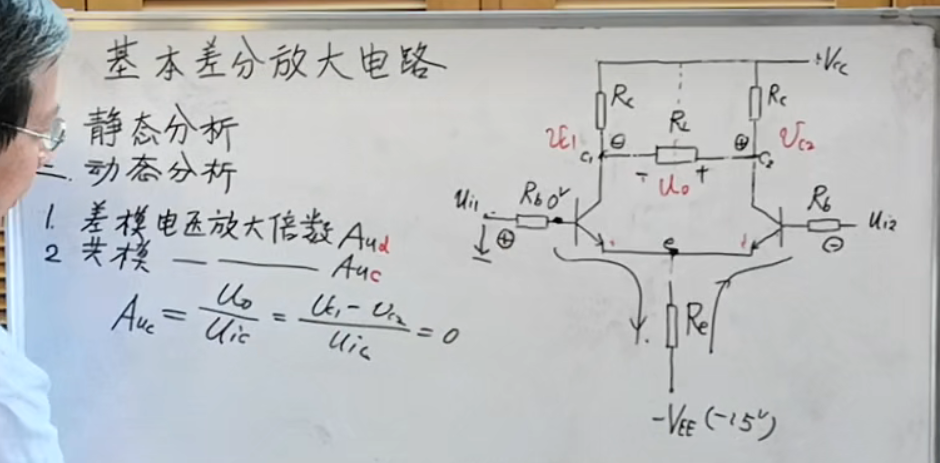 基本差分放大电路
静态分析
二. 动态分析
1. 差模电压放大倍数 Aud
2 共模 — —— Auc
Auc = Uo/Uic = (Uc1 - Uc2)/Uic = 0
+Vcc
Rc
Rc
RL
Uc1
⊖
⊕
Uc2
C1
C2
- Uo +
Ui1
Rb
0V
Rb
Ui2
⊕
⊖
e
Re
-VEE (-15V)